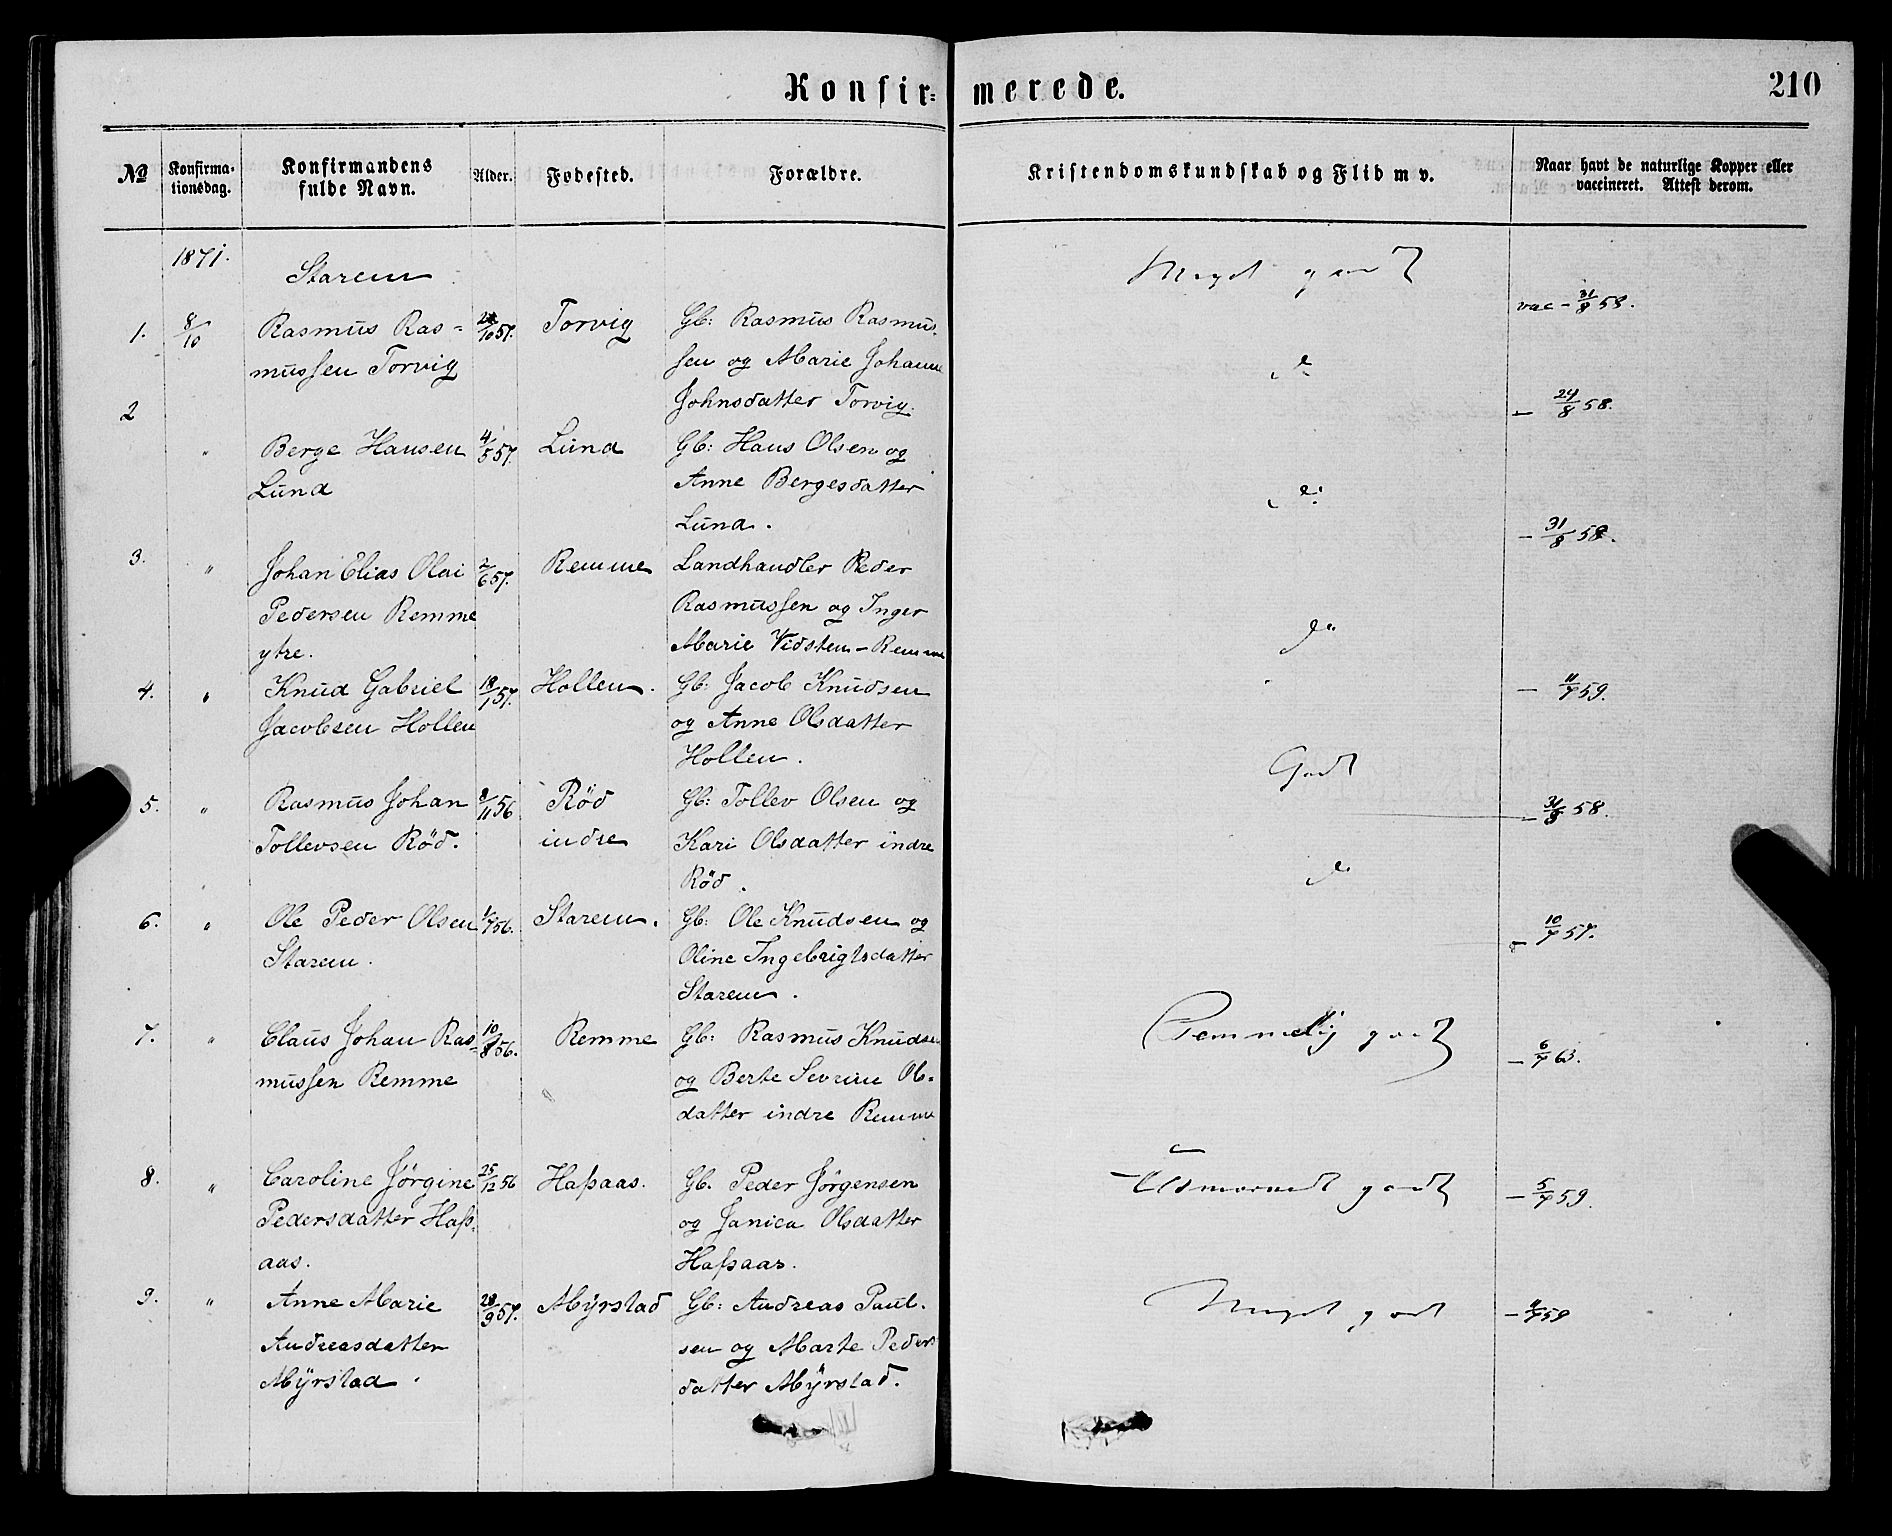 Konfir=
merede.
210
No
Konfirma-
tionsdag.
Konfirmandens
fulde Navn.
Alder.
Fødested.
Forældre.
Kristendomskundskab og Flid m v.
Naar havt de naturlige Kopper eller
vaccineret. Attest derom.
1871.
Starem
Meget godt
1.
8/10
Rasmus Ras=
/10 57.
Torvig
Gb: Rasmus Rasmus=
vac - 31/8 58.
mussen Torvig
sen og Marie Johanne
Johnsdatter Torvig.
2
"
Berge Hansen
4/5 57.
Lund
Gb: Hans Olsen og
- 24/8 58.
Lund
Anne Bergesdatter
Lund.
3.
"
Johan Elias Olai
2/6 57.
Remme
Landhandler Peder
- 31/8 58.
Pedersen Remme
Rasmussen og Inger
ytre.
Marie Vidsten - Remme
do
4.
"
Knud Gabriel
18/7 57.
Hollen.
Gb: Jacob Knudsen
- 11/7 59.
Jacobsen Hollen
og Anne Olsdatter
Hollen.
Godt
5.
"
Rasmus Johan
8/11 56
Röd
Gb: Tollev Olsen og
- 31/8 58.
Tollevsen Röd.
indre
Kari Olsdatter indre
Röd.
do
6.
"
Ole Peder Olsen
Starem.
Gb: Ole Knudsen og
- 10/7 57.
Starem.
Oline Ingebrigtsdatter
Starem.
7.
"
Claus Johan Ras=
10/8 56.
Remme
Gb: Rasmus Knudsen
Temmelig godt
- 6/7 63.
mussen Remme
og Berte Sevrine Ols=
datter indre Remme
8.
"
Caroline Jörgine
25/12 56
Haßaas.
Gb. Peder Jörgensen
Udmærket godt
- 5/7 59.
Pedersdatter Haß=
og Janica Olsdatter
aas.
Haßaas.
9.
"
Anne Marie
28/9 57.
Myrstad
Gb: Andreas Paul=
Meget godt
- 11/7 59
Andreasdatter
sen og Marte Peders
Myrstad.
datter Myrstad.